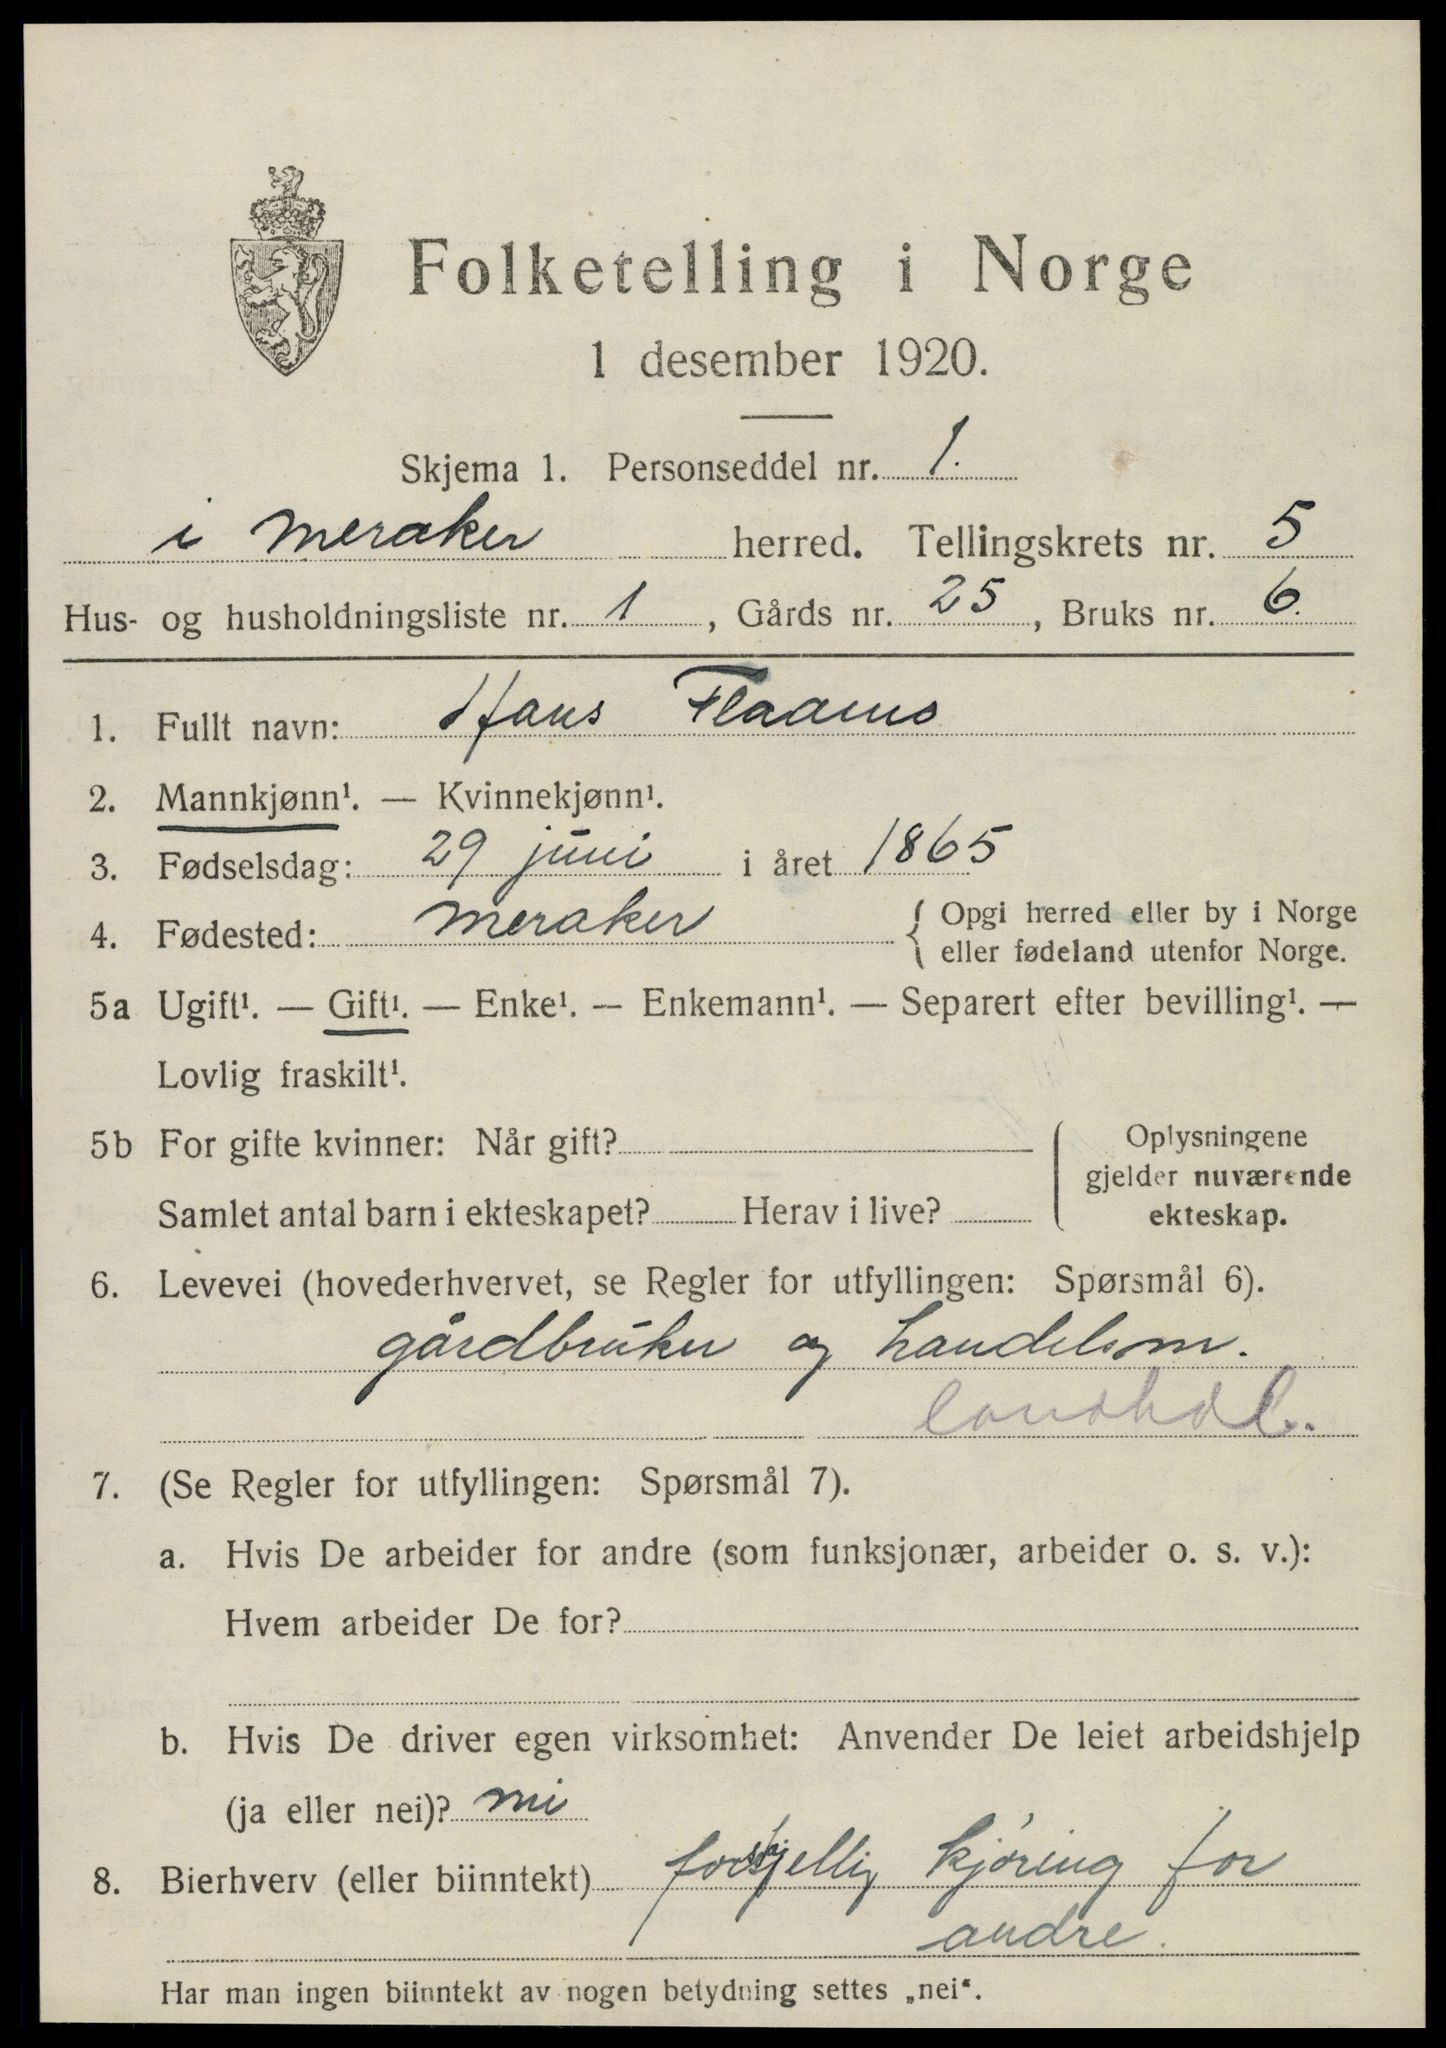 Folketelling i Norge
1 desember 1920.
Skjema 1. Personseddel nr. 1.
i Meraker herred. Tellingskrets nr. 5
Hus- og husholdningsliste nr. 1, Gårds nr. 25, Bruks nr. 6.
1. Fullt navn: Hans Flaamo
2. Mannkjønn¹. — Kvinnekjønn¹.
3. Fødselsdag: 29 juni i året 1865
4. Fødested: Meraker { Opgi herred eller by i Norge
eller fødeland utenfor Norge.
5a Ugift¹. — Gift¹. — Enke¹. — Enkemann¹. — Separert efter bevilling¹. —
Lovlig fraskilt¹.
5b For gifte kvinner: Når gift?
Samlet antal barn i ekteskapet? Herav i live?
Oplysningene
gjelder nuværende
ekteskap.
6. Levevei (hovederhvervet, se Regler for utfyllingen: Spørsmål 6).
gårdbruker og handelsm.
landhdl.
7. (Se Regler for utfyllingen: Spørsmål 7).
a. Hvis De arbeider for andre (som funksjonær, arbeider o. s. v.):
Hvem arbeider De for?
b. Hvis De driver egen virksomhet: Anvender De leiet arbeidshjelp
(ja eller nei)? nei
8. Bierhverv (eller biinntekt) forskjellig kjøring for
andre.
Har man ingen biinntekt av nogen betydning settes „nei“.